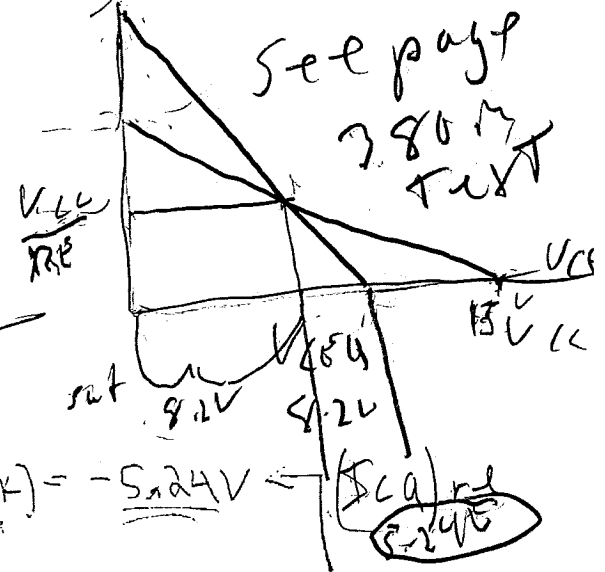 See page
380 in
text
VCC
RE
VCE
15 V
VCC
VCEQ
sat
8.2V
8.2V
) = -5.24V ← (ICQ) re
5.24V